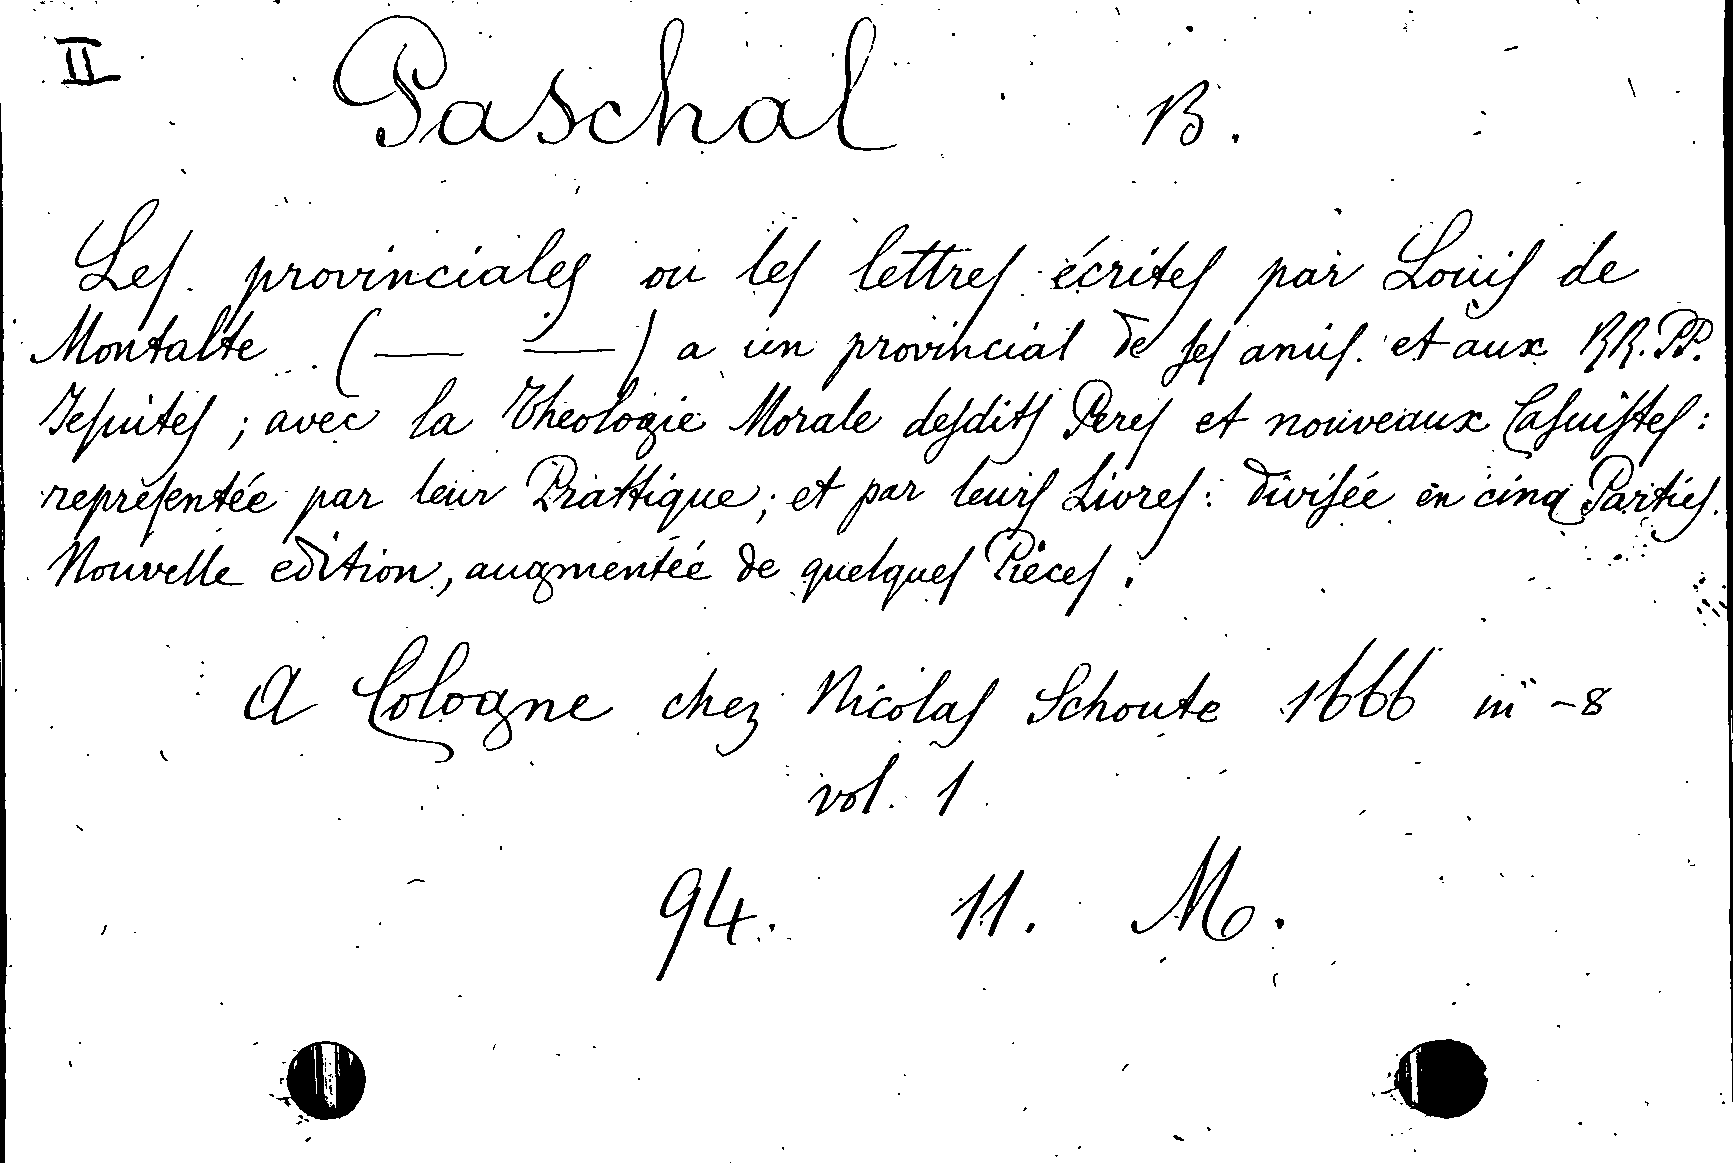 II Paschal B.
Les provinciales ou les lettres écrites par Louis de
Montalte (— —) a un provincial de ses amis. et aux RR. PP.
Jesuites ; avec la Theologie Morale desdits Peres et nouveaux Casuistes :
representée par leur Prattique ; et par leurs Livres : divisée en cinq Parties.
Nouvelle edition, augmentée de quelques Pièces.
A Cologne chez Nicolas Schoute 1666 in -8
vol. 1
94. 11. M.